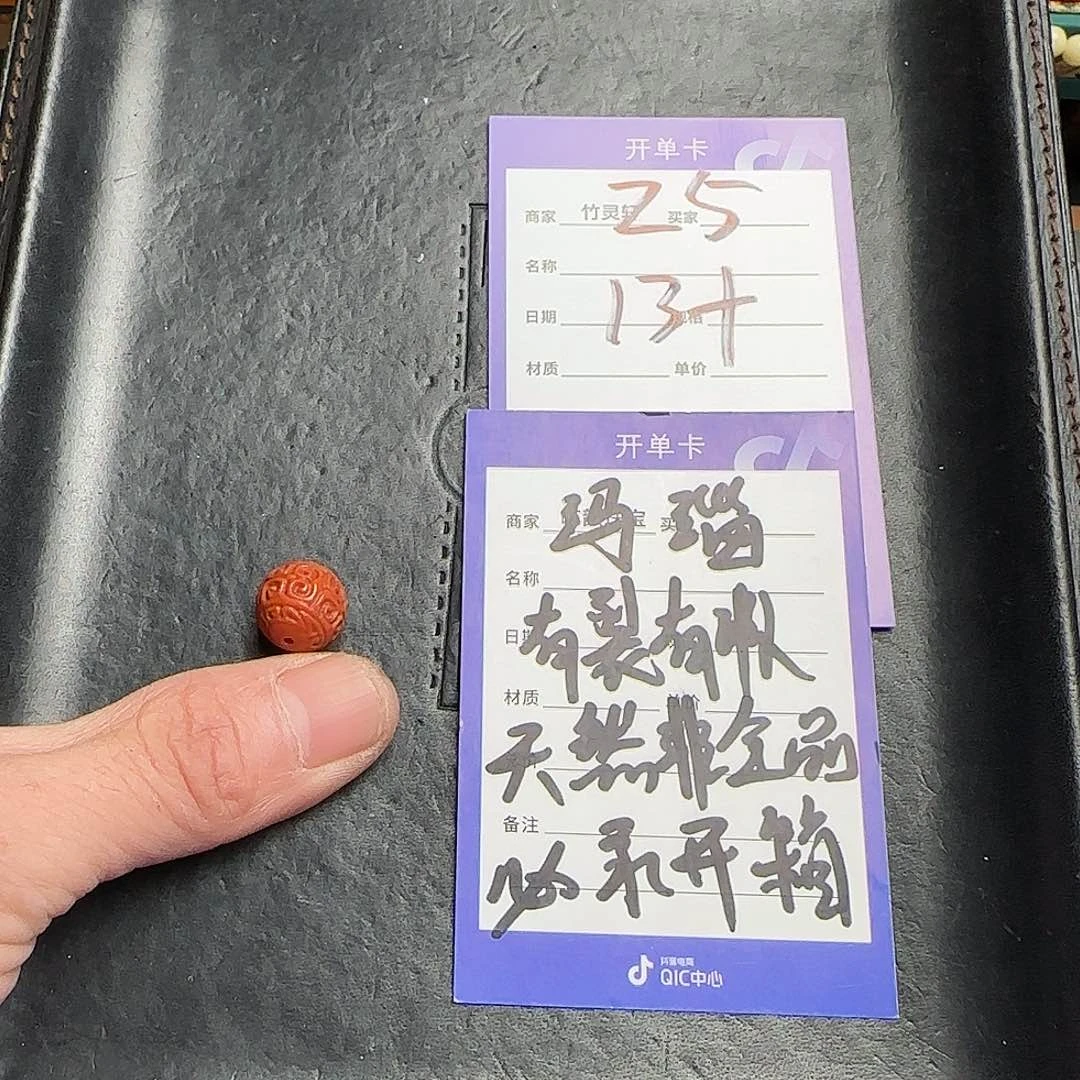 开单卡
25
商家 竹灵轩 买家
名称
13+
日期 规格
材质 单价
开单卡
玛瑙
商家 买
名称
有裂有
日期
材质 单价
天然非全品
备注
必录开箱
抖音电商
QIC中心